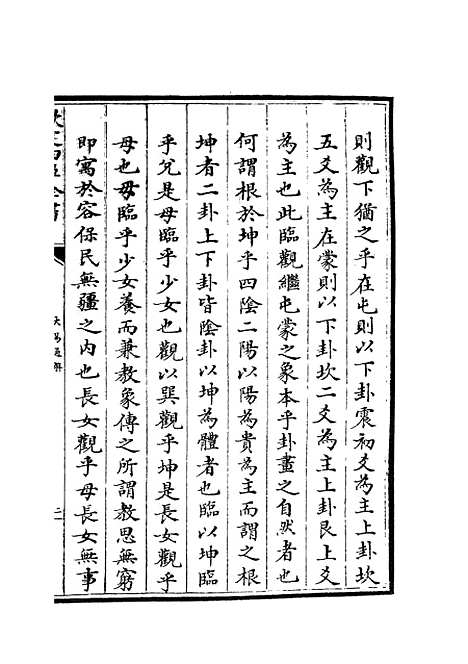 則觀下猶之乎在屯則以下卦震初爻為主上卦坎
五爻為主在蒙則以下卦坎二爻為主上卦艮上爻
為主也此臨觀繼屯蒙之象本乎卦畫之自然者也
何謂根於坤乎四陰二陽以陽為貴為主而謂之根
坤者二卦上下卦皆陰卦以坤為體者也臨以坤臨
乎兌是母臨乎少女也觀以巽觀乎坤是長女觀乎
母也毋臨乎少女養而兼教象傳之所謂教思無窮
即寓於容保民無疆之內也長女觀乎母長女無事
欽定四庫全書
大易通解
二